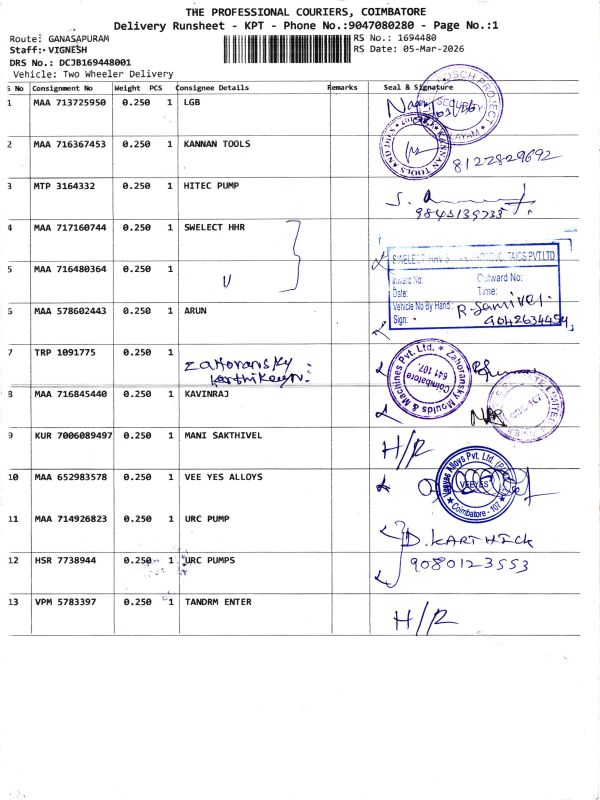 THE PROFESSIONAL COURIERS, COIMBATORE
Delivery Runsheet - KPT - Phone No.:9047080280 - Page No.:1
Route: GANASAPURAM
RS No.: 1694480
Staff: VIGNESH
RS Date: 05-Mar-2026
DRS No.: DCJB169448001
Vehicle: Two Wheeler Delivery
S No Consignment No Weight PCS Consignee Details Remarks Seal & Signature
1 MAA 713725950 0.250 1 LGB
SECURITY
2 MAA 716367453 0.250 1 KANNAN TOOLS
KANNAN TOOLS
8122829692
3 MTP 3164332 0.250 1 HITEC PUMP
S.
4 MAA 717160744 0.250 1 SWELECT HHR
SWELECT HHV PVT.LTD
5 MAA 716480364 0.250 1
Inward No: Outward No:
Date: Time:
6 MAA 578602443 0.250 1 ARUN
Vehicle No By Hand:
Sign:
R. Samivel.
9042634454
7 TRP 1091775 0.250 1
Zahoransky
Karthikeyn.
Zahoransky Moulds & Machines Pvt. Ltd.
Coimbatore
641 107.
8 MAA 716845440 0.250 1 KAVINRAJ
9 KUR 7006089497 0.250 1 MANI SAKTHIVEL
H/R
10 MAA 652983578 0.250 1 VEE YES ALLOYS
Alloys Pvt. Ltd.
VEEYES
Coimbatore - 107
11 MAA 714926823 0.250 1 URC PUMP
D. KARTHICK
12 HSR 7738944 0.250 1 URC PUMPS
9080123553
13 VPM 5783397 0.250 1 TANDRM ENTER
H/R